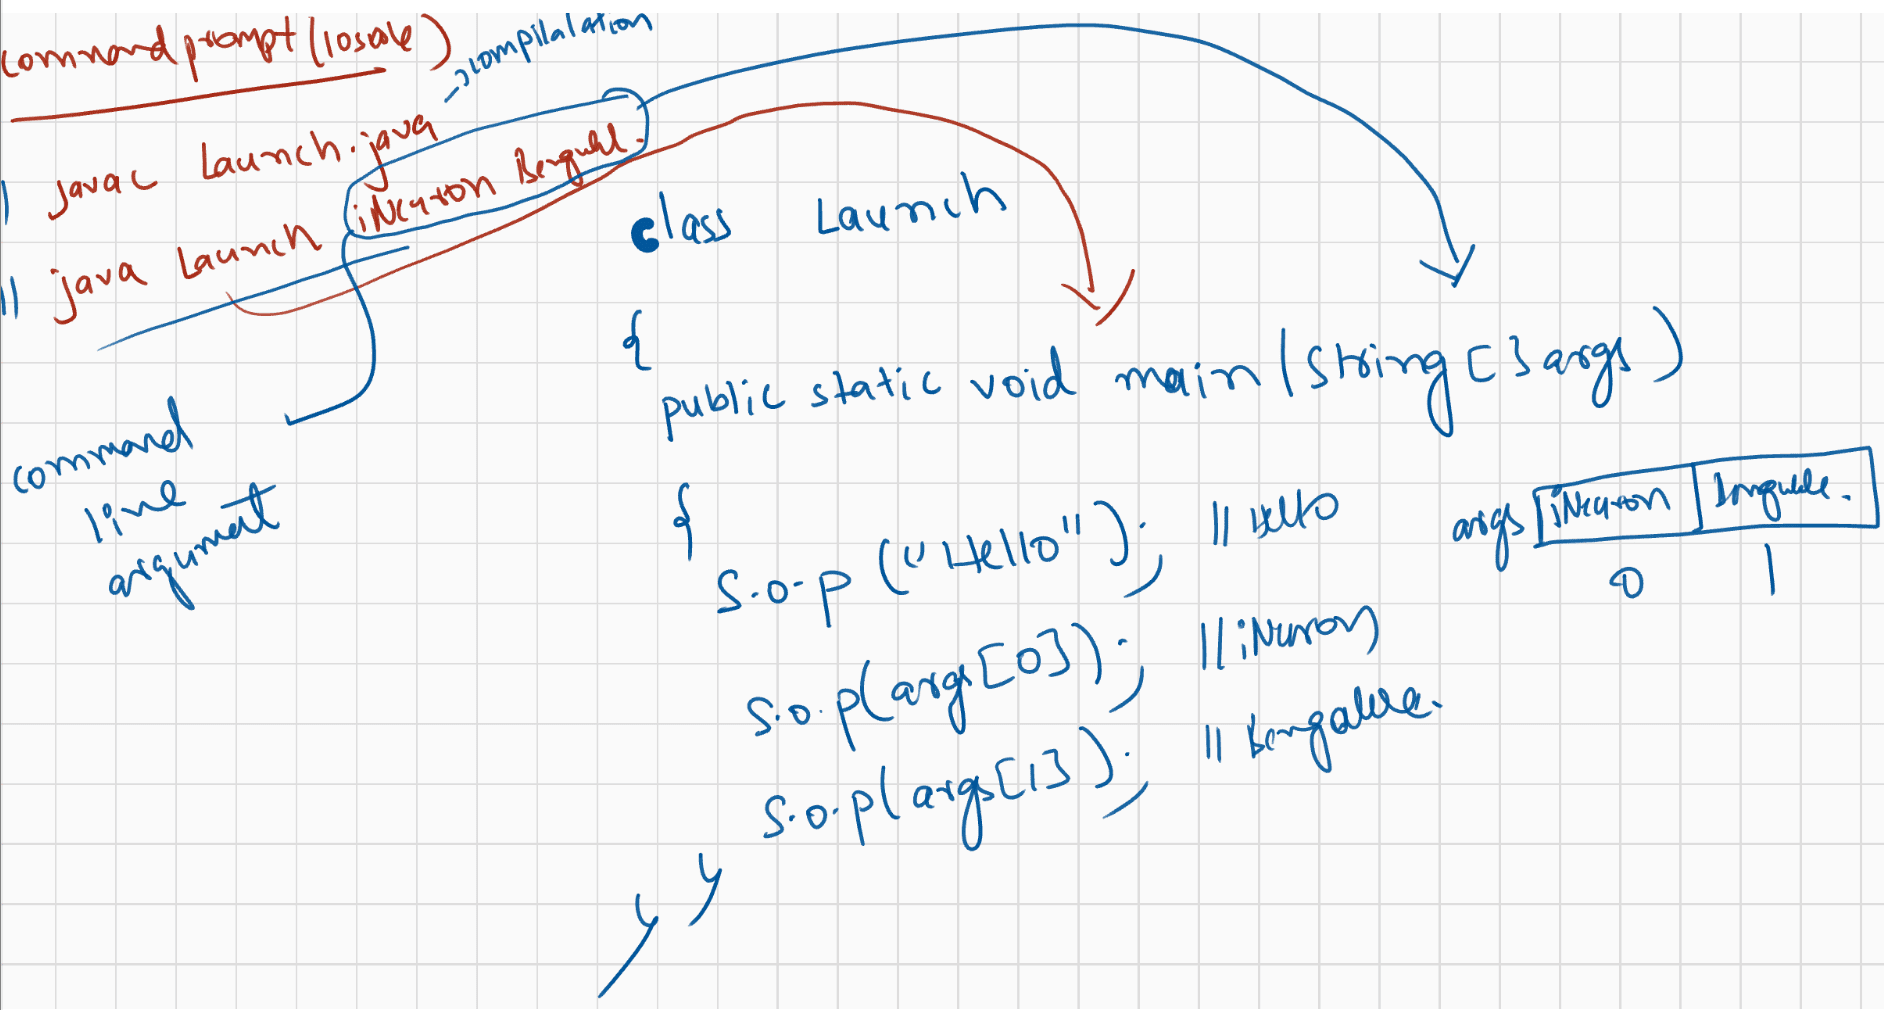 command prompt (
→ compilalation
| javac Launch.java
|| java Launch iNeuron
command
line
argument
class Launch
{
public static void main (String [] args)
{
S.o.p ("Hello"); || Hello
S.o.p(args[0]); || iNeuron
S.o.p(args[1]);
}
}
args iNeuron
0 1